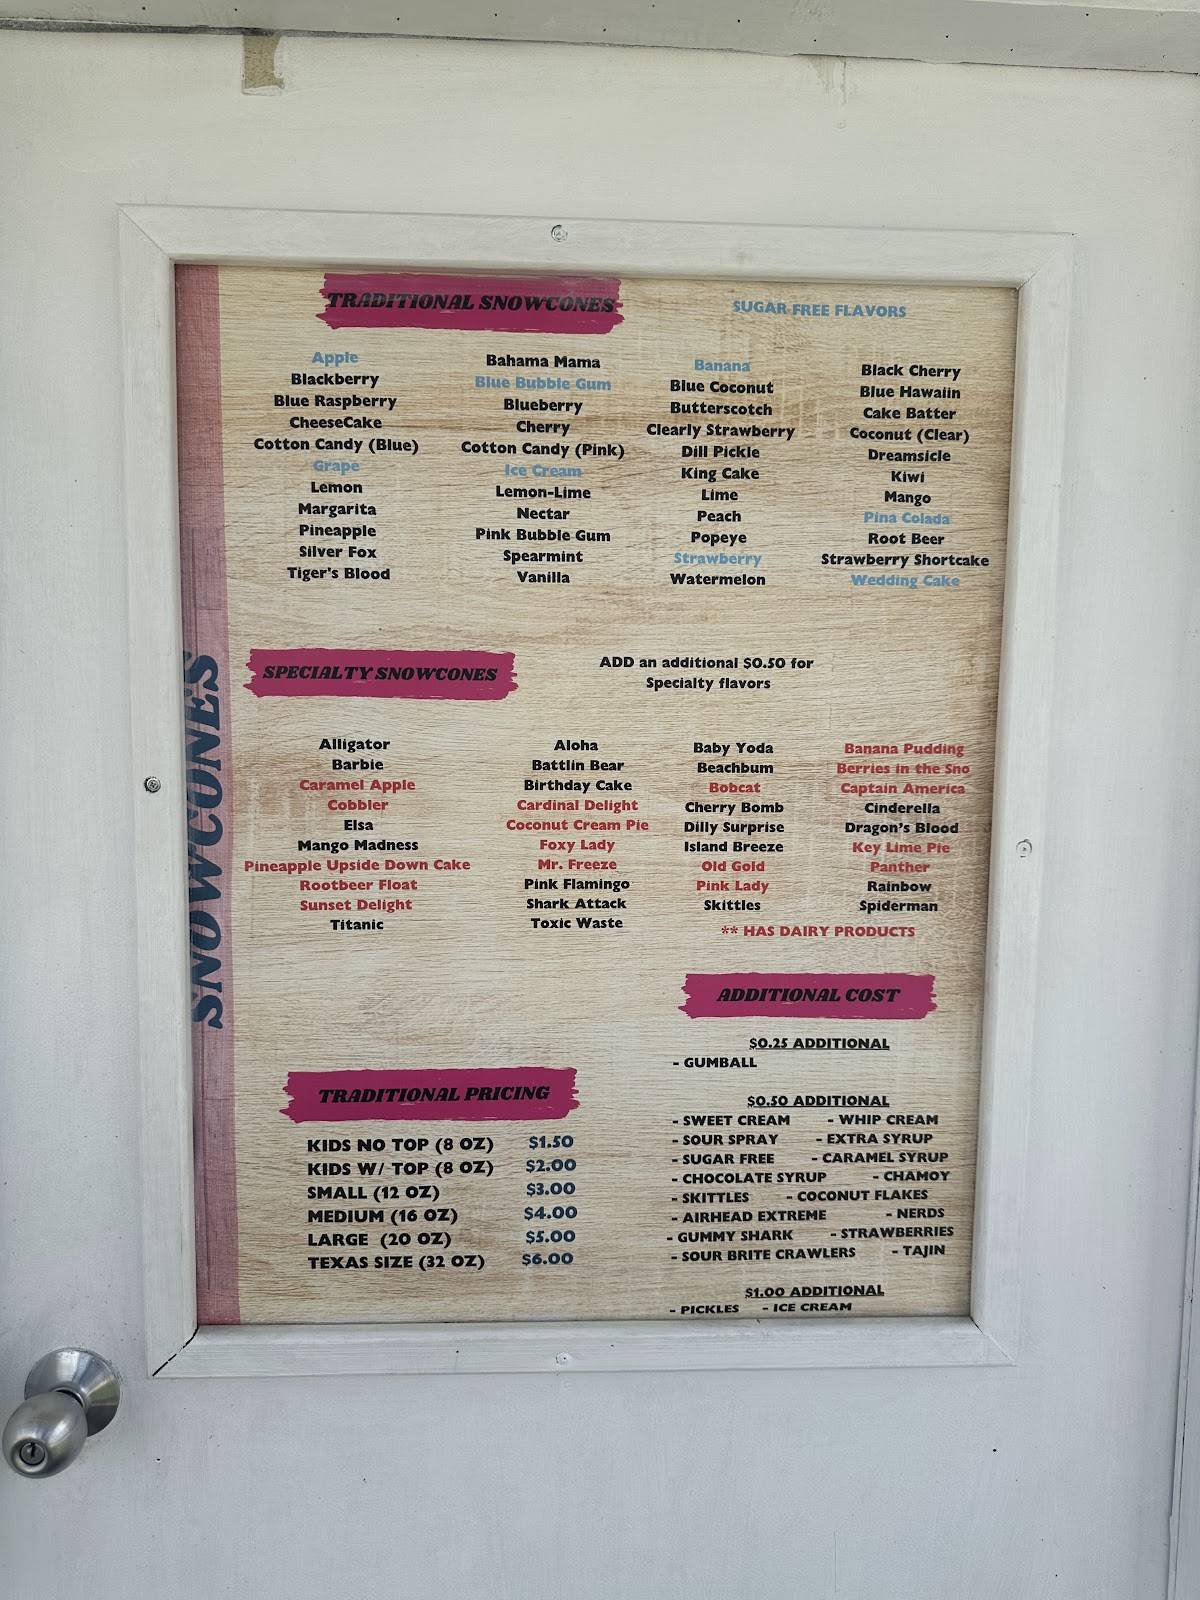 SNOWCONES
TRADITIONAL SNOWCONES
SUGAR FREE FLAVORS
Apple
Blackberry
Blue Raspberry
CheeseCake
Cotton Candy (Blue)
Grape
Lemon
Margarita
Pineapple
Silver Fox
Tiger's Blood
Bahama Mama
Blue Bubble Gum
Blueberry
Cherry
Cotton Candy (Pink)
Ice Cream
Lemon-Lime
Nectar
Pink Bubble Gum
Spearmint
Vanilla
Banana
Blue Coconut
Butterscotch
Clearly Strawberry
Dill Pickle
King Cake
Lime
Peach
Popeye
Strawberry
Watermelon
Black Cherry
Blue Hawaiin
Cake Batter
Coconut (Clear)
Dreamsicle
Kiwi
Mango
Pina Colada
Root Beer
Strawberry Shortcake
Wedding Cake
SPECIALTY SNOWCONES
ADD an additional $0.50 for
Specialty flavors
Alligator
Barbie
Caramel Apple
Cobbler
Elsa
Mango Madness
Pineapple Upside Down Cake
Rootbeer Float
Sunset Delight
Titanic
Aloha
Battlin Bear
Birthday Cake
Cardinal Delight
Coconut Cream Pie
Foxy Lady
Mr. Freeze
Pink Flamingo
Shark Attack
Toxic Waste
Baby Yoda
Beachbum
Bobcat
Cherry Bomb
Dilly Surprise
Island Breeze
Old Gold
Pink Lady
Skittles
Banana Pudding
Berries in the Sno
Captain America
Cinderella
Dragon's Blood
Key Lime Pie
Panther
Rainbow
Spiderman
** HAS DAIRY PRODUCTS
TRADITIONAL PRICING
KIDS NO TOP (8 OZ) $1.50
KIDS W/ TOP (8 OZ) $2.00
SMALL (12 OZ) $3.00
MEDIUM (16 OZ) $4.00
LARGE (20 OZ) $5.00
TEXAS SIZE (32 OZ) $6.00
ADDITIONAL COST
$0.25 ADDITIONAL
- GUMBALL
$0.50 ADDITIONAL
- SWEET CREAM - WHIP CREAM
- SOUR SPRAY - EXTRA SYRUP
- SUGAR FREE - CARAMEL SYRUP
- CHOCOLATE SYRUP - CHAMOY
- SKITTLES - COCONUT FLAKES
- AIRHEAD EXTREME - NERDS
- GUMMY SHARK - STRAWBERRIES
- SOUR BRITE CRAWLERS - TAJIN
$1.00 ADDITIONAL
- PICKLES - ICE CREAM